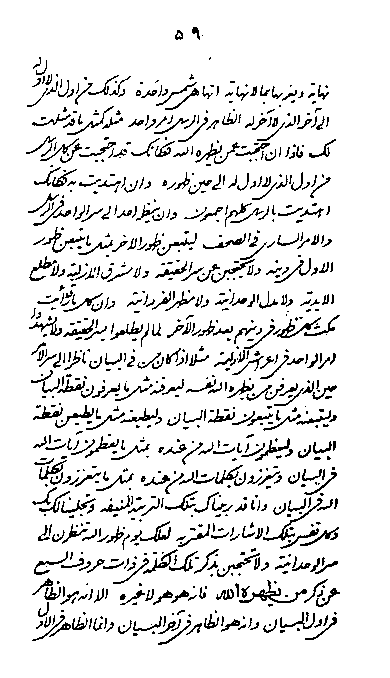 ٥٩
نهاية ويغربها بما لا نهاية انها هي شمس واحدة وكذلك من اول الذي لا اول له
الى آخر الذي لا آخر له الظاهر في الرسل امر واحد مثله كمثل ما قد مثلت
لك فاذا ان احتجبت عن يظهره الله فكانك قد احتجبت عن كل الرسل
من اول الذي لا اول له الى حين ظهوره وان اهتديت به فكانك
اهتديت بالرسل كلهم اجمعون وان ينظر احد الى سر الواحد في الرسل
والامر الساري في الصحف ليتبعن ظهور الآخر بمثل ما يتبعن ظهور
الاول في دينه ولا يحتجبن عن سر الحقيقة ولا مشرق الازلية ولا مطلع
الابدية ولا مدل الوحدانية ولا مظهر الفردانية وان كل ما
مكث كل ظهور في دينهم بعد ظهور الآخر لما لم يطلعوا بسر الحقيقة ولا يشهدوا
امر الواحد في اعراش الازلية مثلا اذا كان من في البيان ناظرا الى سر الامر
حين الذي يعرفن من يظهره الله نفسه ليعرفنه بمثل ما يعرفون نقطة البيان
وليتبعنه بمثل ما يتبعون نقطة البيان وليطيعنه بمثل ما يطيعن نقطة
البيان وليعظمون آيات الله من عنده بمثل ما يعظمون آيات الله
في البيان وليعززون كلمات الله من عنده بمثل ما يعززون كلمات
الله في البيان وانا قد ربيناك بتلك التربية المنيعة وتجلينا لك بك
وكل نفس بتلك الاشارات المقترية لعلك يوم ظهور الله تنظرن الى
سر الوحدانية ولا تحتجبن بذكر تلك الكلمة في ذات حروف السبع
عن ذكر من يظهره الله فانه هو هو لا غيره الا انه هو الظاهر
في اول البيان وانه هو الظاهر في آخر البيان وانما الظاهر في الاول